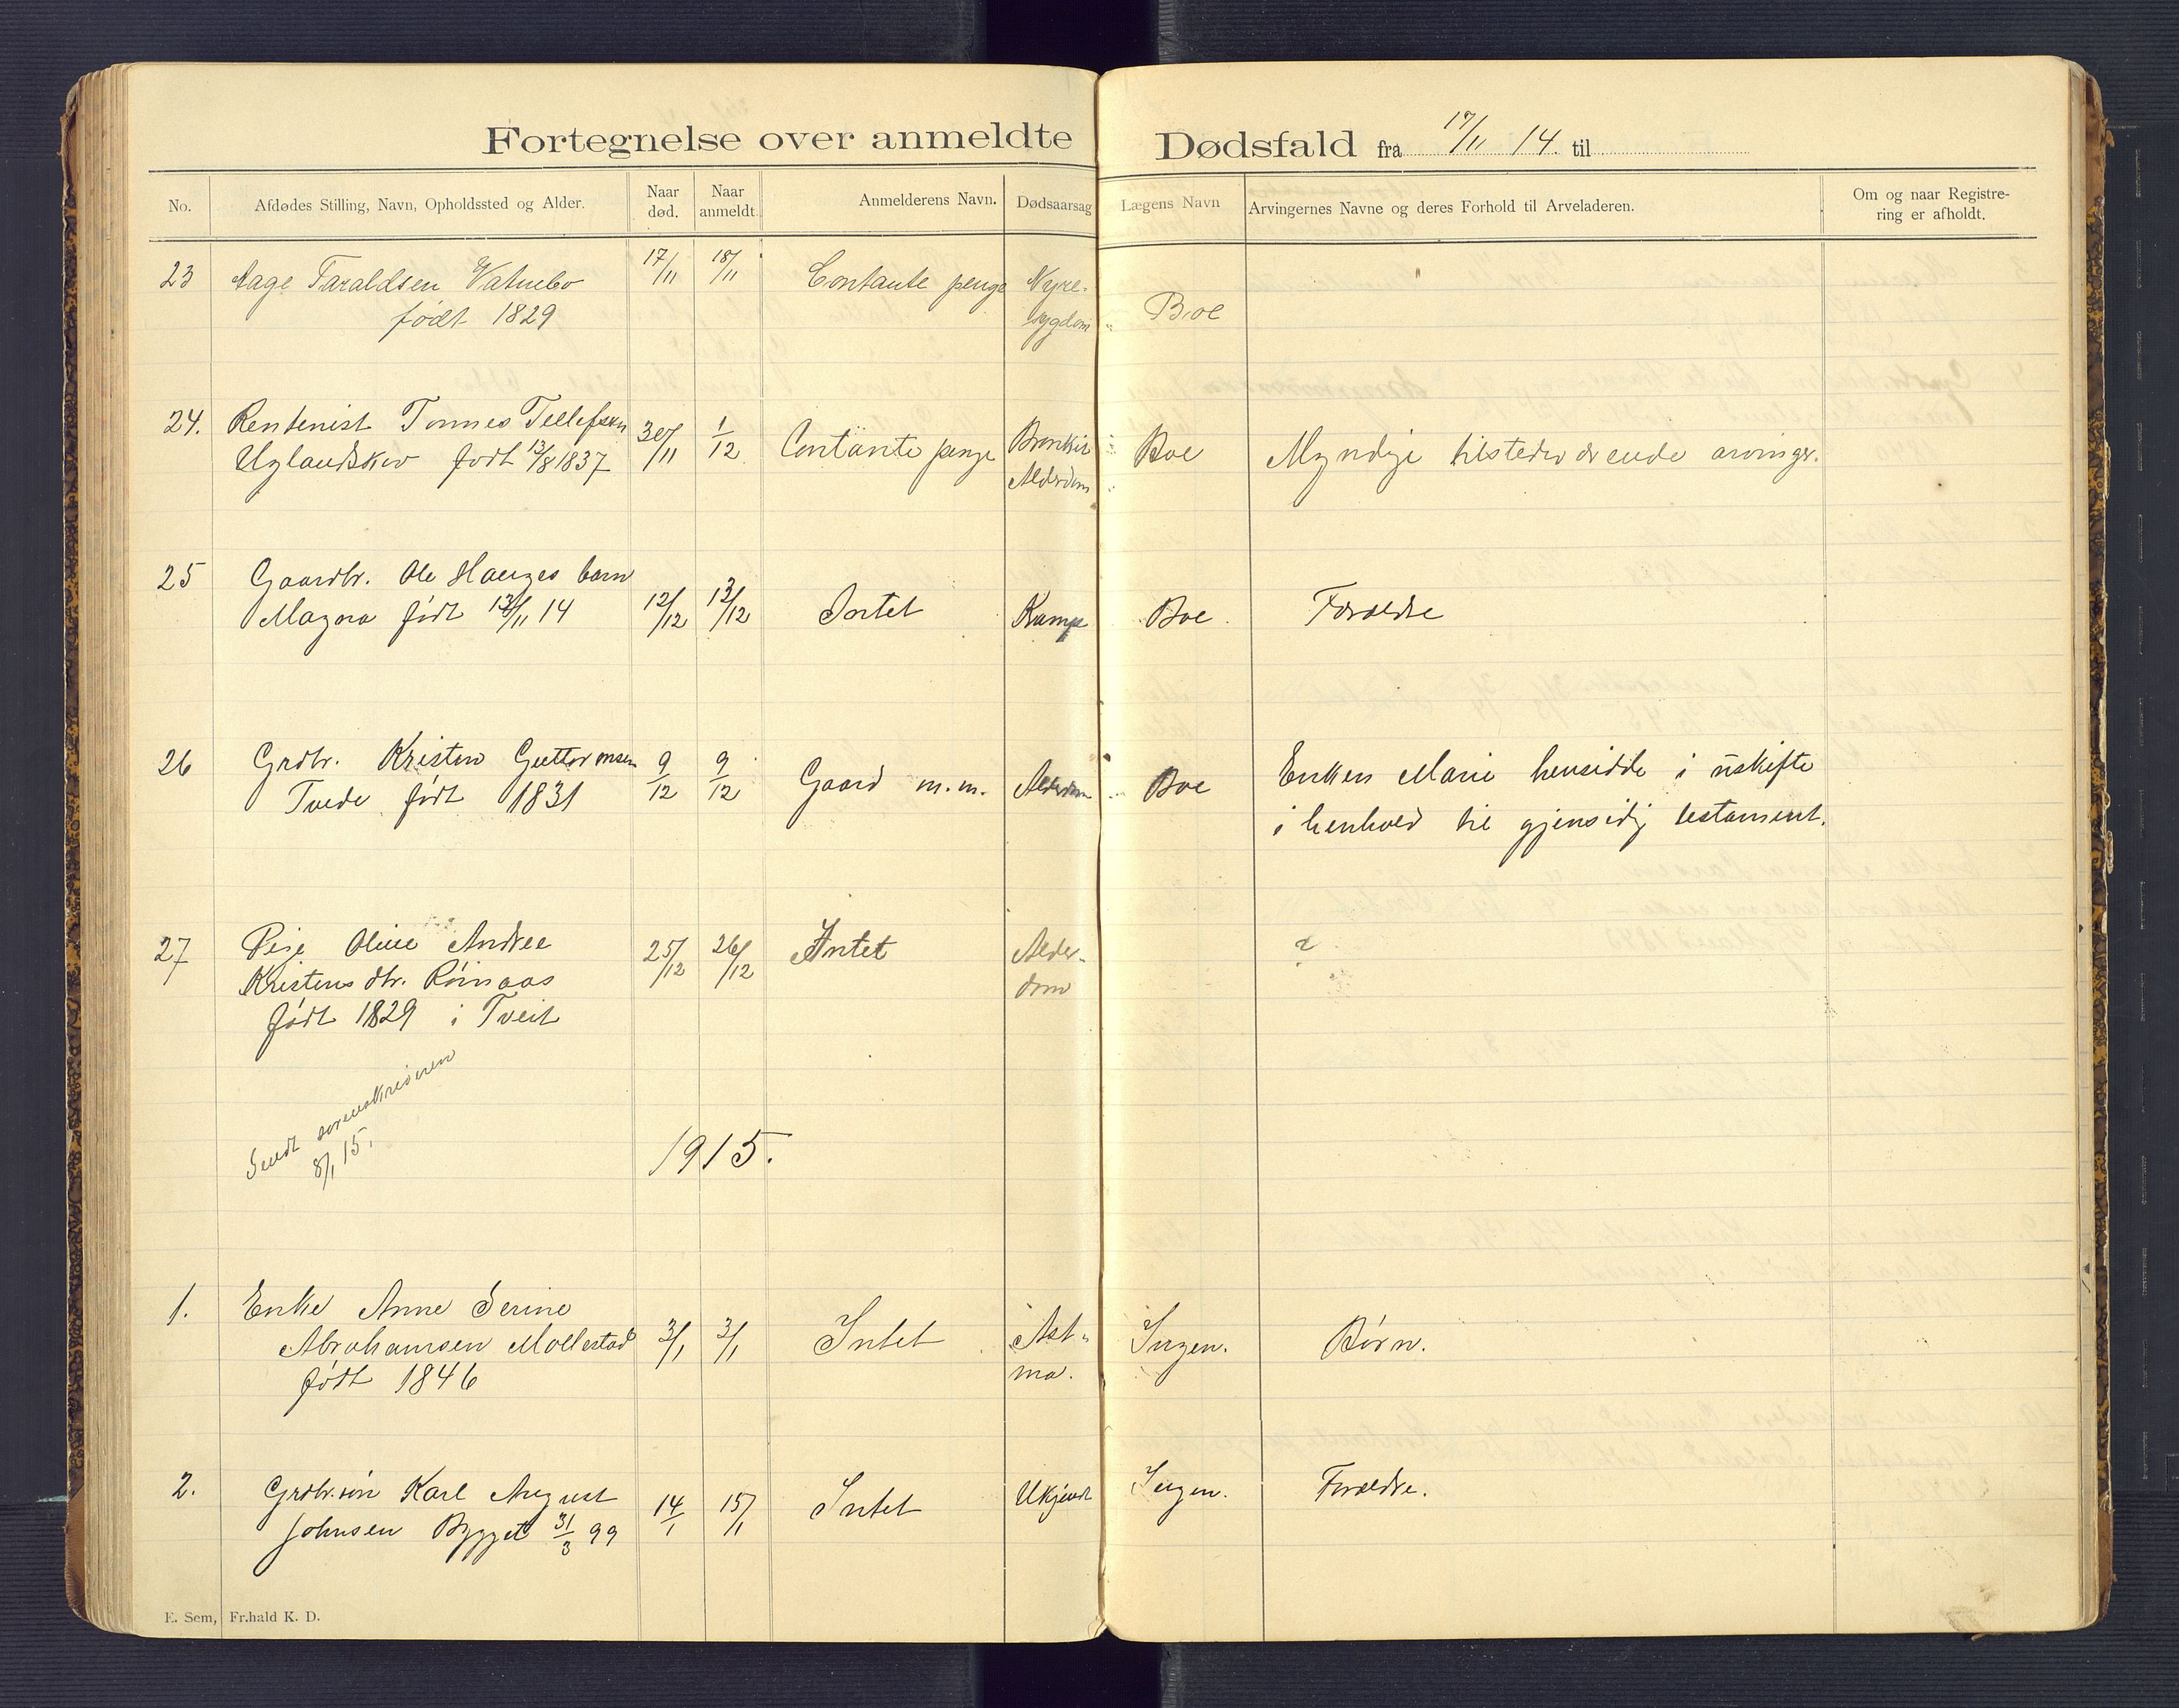 Fortegnelse over anmeldte Dødsfald fra 17/11 14 til
No. Afdødes Stilling, Navn, Opholdssted og Alder. Naar død. Naar anmeldt. Anmelderens Navn. Dødsaarsag Lægens Navn Arvingernes Navne og deres Forhold til Arveladeren. Om og naar Registrering er afholdt.
23 Aage Taraldsen Vatnebo 17/11 18/11 Contante penge Nyre-
født 1829 sygdom Boe
24. Rentenist Tønnes Tellefsen 30/11 1/12 Contante penge Bronkit Boe Myndige tilstedeværende arvinger.
Uglandskor født 13/8 1837 Alderdom
25 Gaardbr. Ole Hauges barn
Magna født 13/11 14 12/12 13/12 Intet Krampe Boe Forældre
26 Grdbr. Kristen Guttormsen 9/12 9/12 Gaard m.m. Alderdom Boe Enken Marie hensidde i uskifte
Tvede født 1831 i henhold til gjensidig testament.
27 Pige Oline Andrea 25/12 26/12 Intet Alder- ?
Kristensdtr. Røinaas dom
født 1829 i Tveit
Sendt sorenskriveren
8/1 15.
1915.
1. Enke Anne Serine
Abrahamsen Mollestad 3/1 3/1 Intet Ast- Ingen. Børn.
født 1846 ma.
2. Grdbr.søn Karl August 14/1 15/1 Intet Ukjendt Ingen. Forældre.
Johnsen Bygget 31/3 99
E. Sem, Fr.hald K. D.